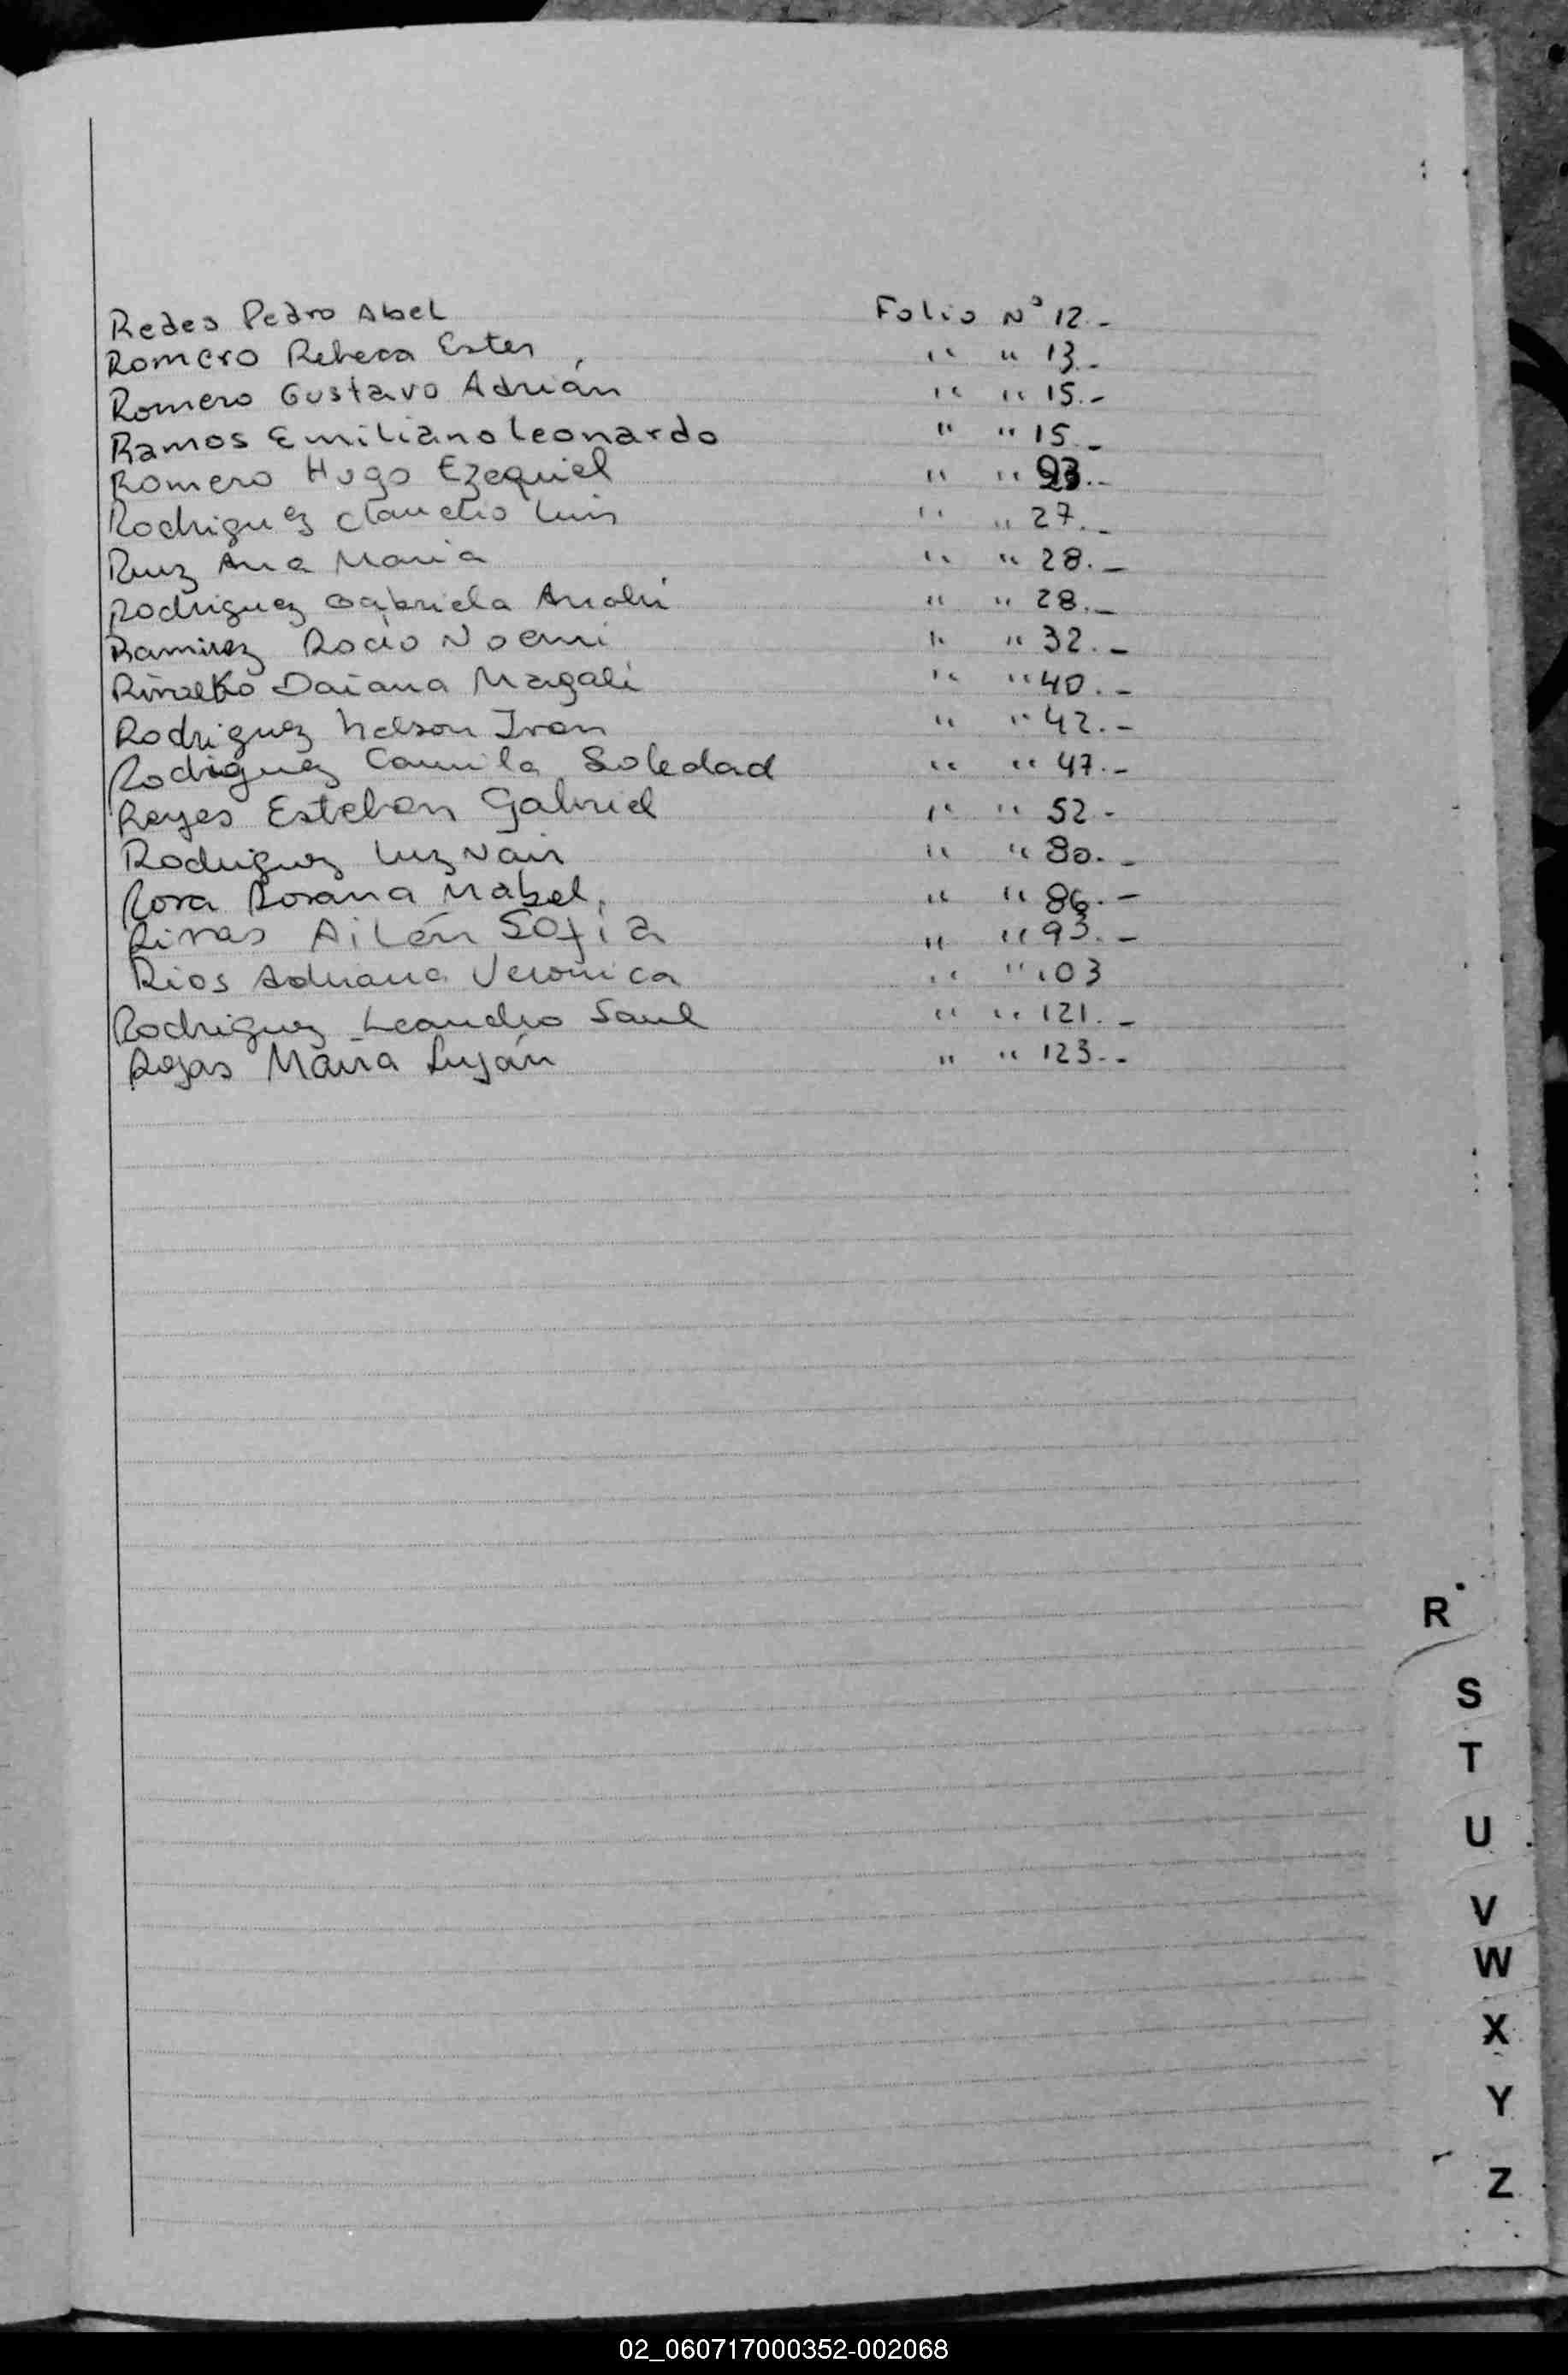 Redes Pedro Abel Folio Nº 12.-
Romero Rebeca Ester " " 13.-
Romero Gustavo Adrián " " 15.-
Ramos Emiliano Leonardo " " 15.-
Romero Hugo Ezequiel " " 23.-
Rodriguez Claudio Luis " " 27.-
Ruiz Ana Maria " " 28.-
Rodriguez Gabriela Anahi " " 28.-
Ramirez Rocio Noemi " " 32.-
Daiana Magali " " 40.-
Rodriguez Nelson Ivan " " 42.-
Rodiguez Camila Soledad " " 47.-
Reyes Esteban Gabriel " " 52.-
Rodriguez Luz Nair " " 80.-
Rosa Rosana Mabel. " " 86.-
Rivas Ailén Sofia " " 93.-
Rios Adriana Veronica " " 103
Rodriguez Leandro Saul " " 121.-
Rojas Maria Luján " " 123.-
R
S
T
U
V
W
X
Y
Z
02_060717000352-002068